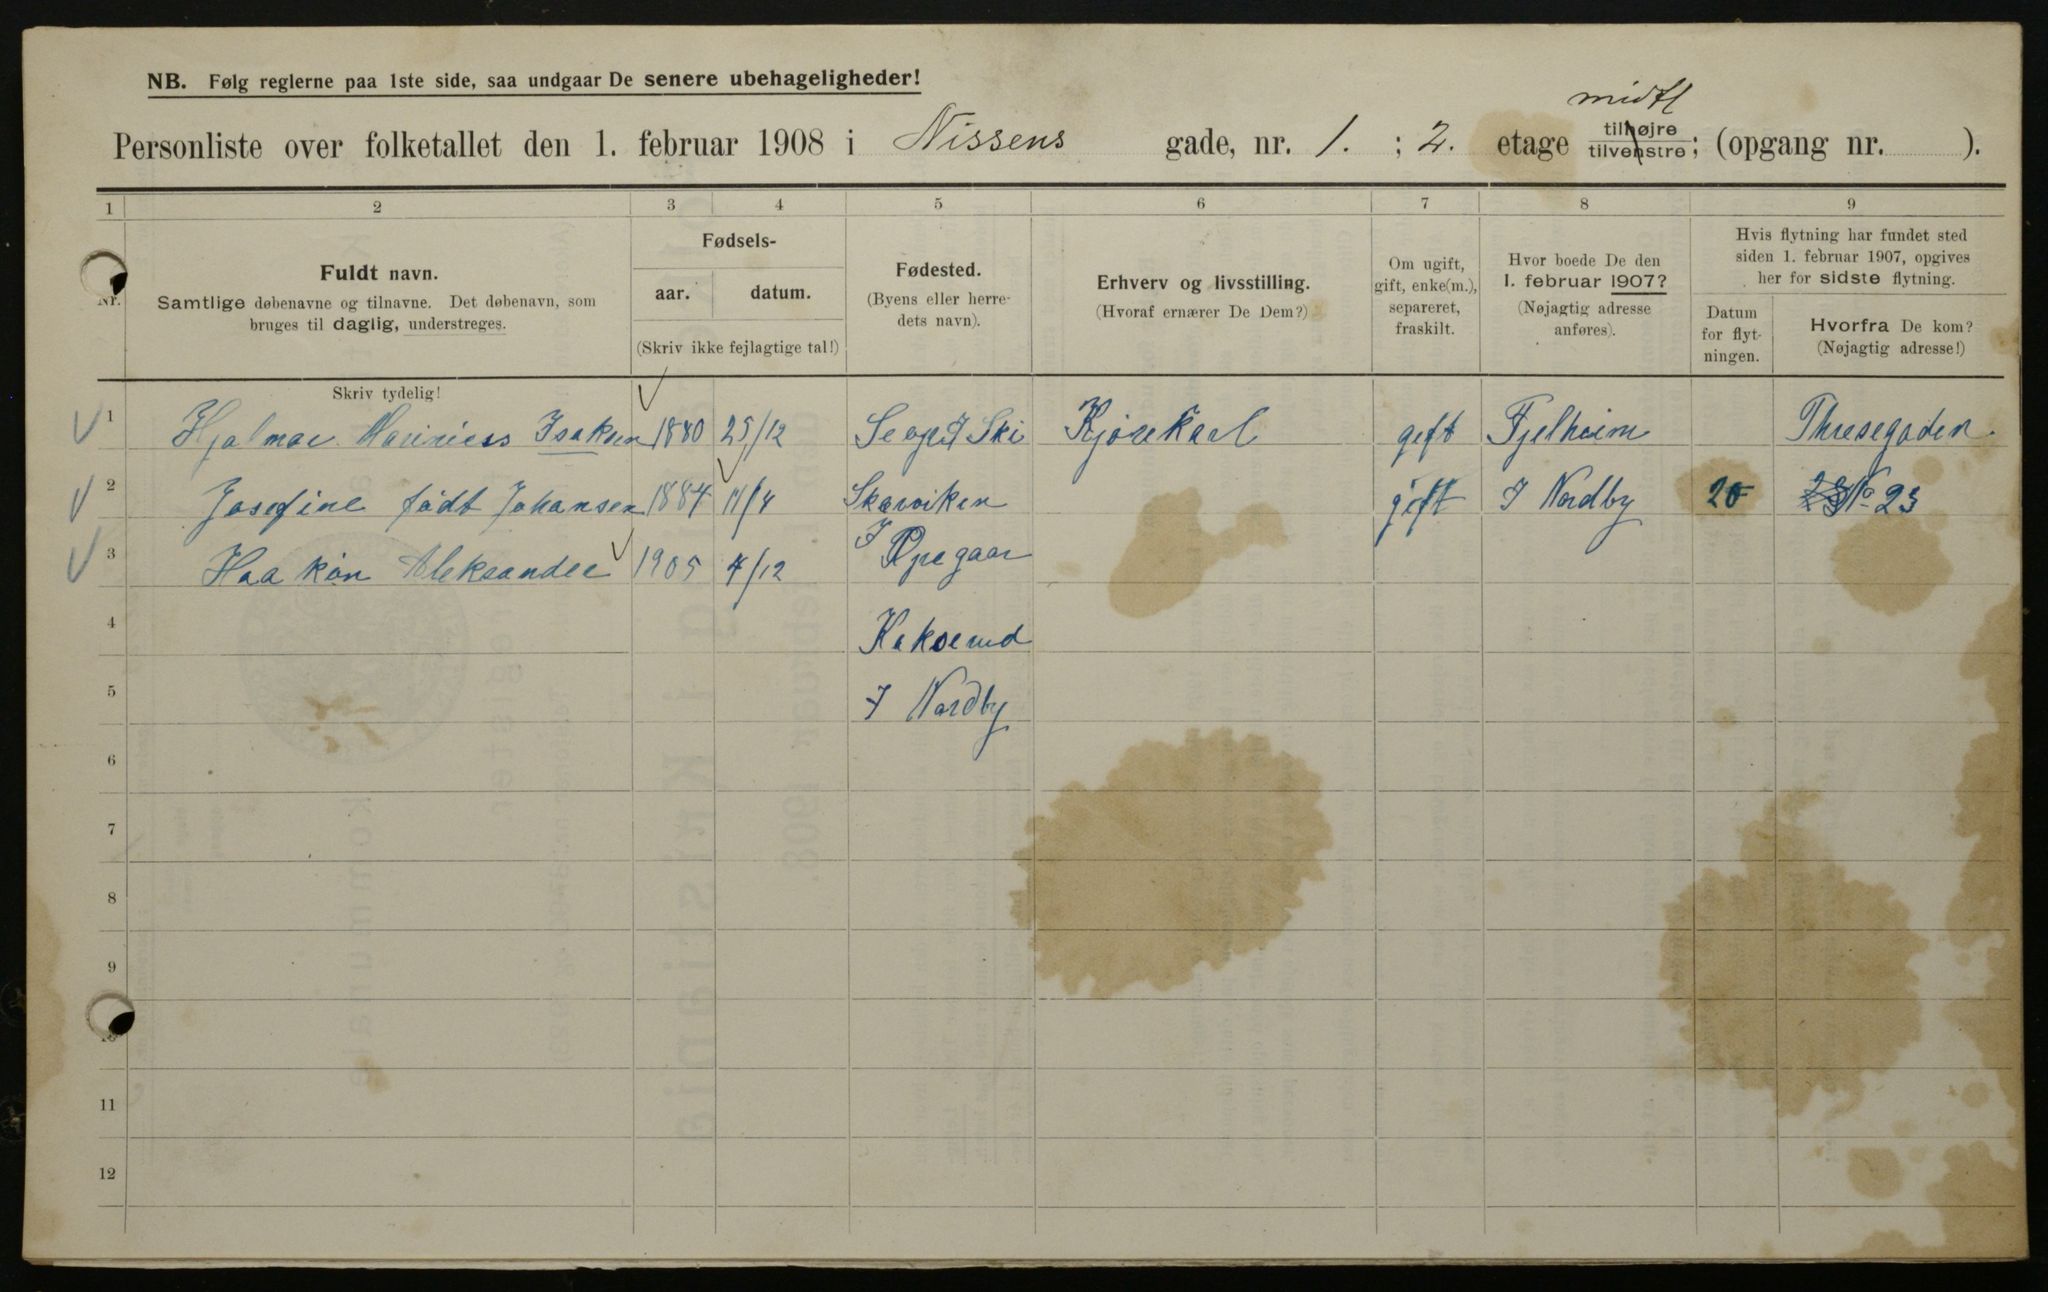 NB. Følg reglerne paa 1ste side, saa undgaar De senere ubehageligheder!
midtl
Personliste over folketallet den 1. februar 1908 i Nissens gade, nr. 1. ; 2. etage tilhøjre tilvenstre; (opgang nr. ).
1 2 3 4 5 6 7 8 9
Nr.
Fuldt navn.
Samtlige døbenavne og tilnavne. Det døbenavn, som
bruges til daglig, understreges.
Fødsels-
aar. datum.
(Skriv ikke fejlagtige tal!)
Fødested.
(Byens eller herre-
dets navn).
Erhverv og livsstilling.
(Hvoraf ernærer De Dem?)
Om ugift,
gift, enke(m.),
separeret,
fraskilt.
Hvor boede De den
1. februar 1907?
(Nøjagtig adresse
anføres).
Hvis flytning har fundet sted
siden 1. februar 1907, opgives
her for sidste flytning.
Datum
for flyt-
ningen.
Hvorfra De kom?
(Nøjagtig adresse!)
Skriv tydelig!
1 Hjalmar Isaksen 1880 25/12 I Ski Kjørekarl geft Fjelheim Thresegaden
2 Josefine født Johansen 1884 11/4 Skarviken geft I Nordby 20 No 23
3 Haakon Aleksander 1905 4/12 I Opegaar
4 Kakserud
5 I Nordby
6
7
8
9
11
12